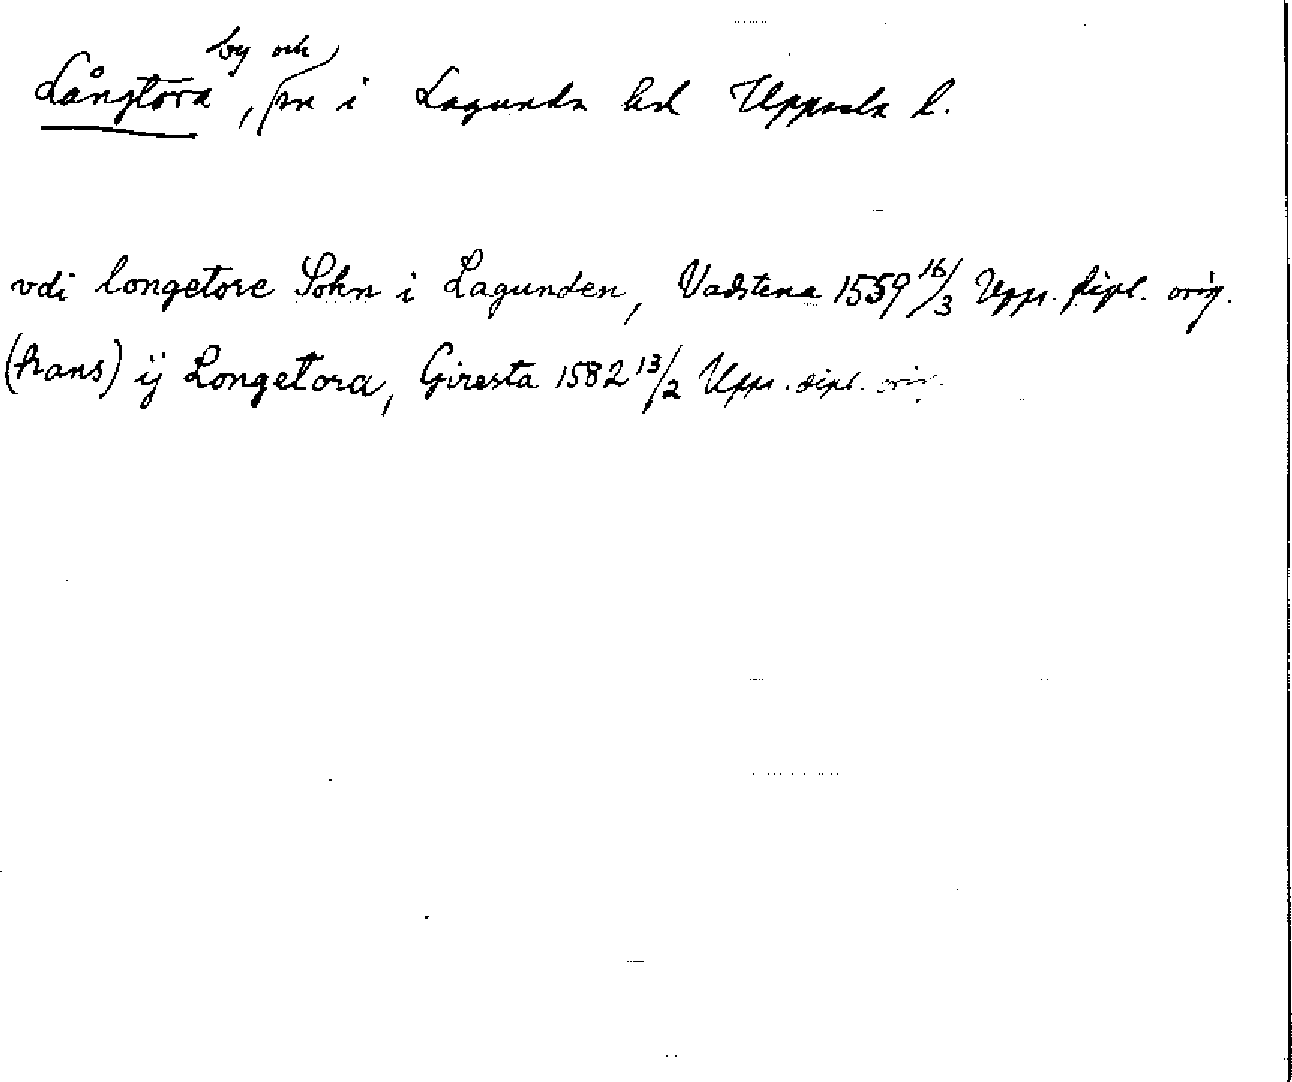 Långtora, by och sn i Lagunda hd Uppsala l.
vdi longetore Sokn i Lagunden, Vadstena 1559 16/3 Upps. dipl. orig.
(hans) ij Longetora, Giresta 1582 13/2 Upps. dipl. orig.